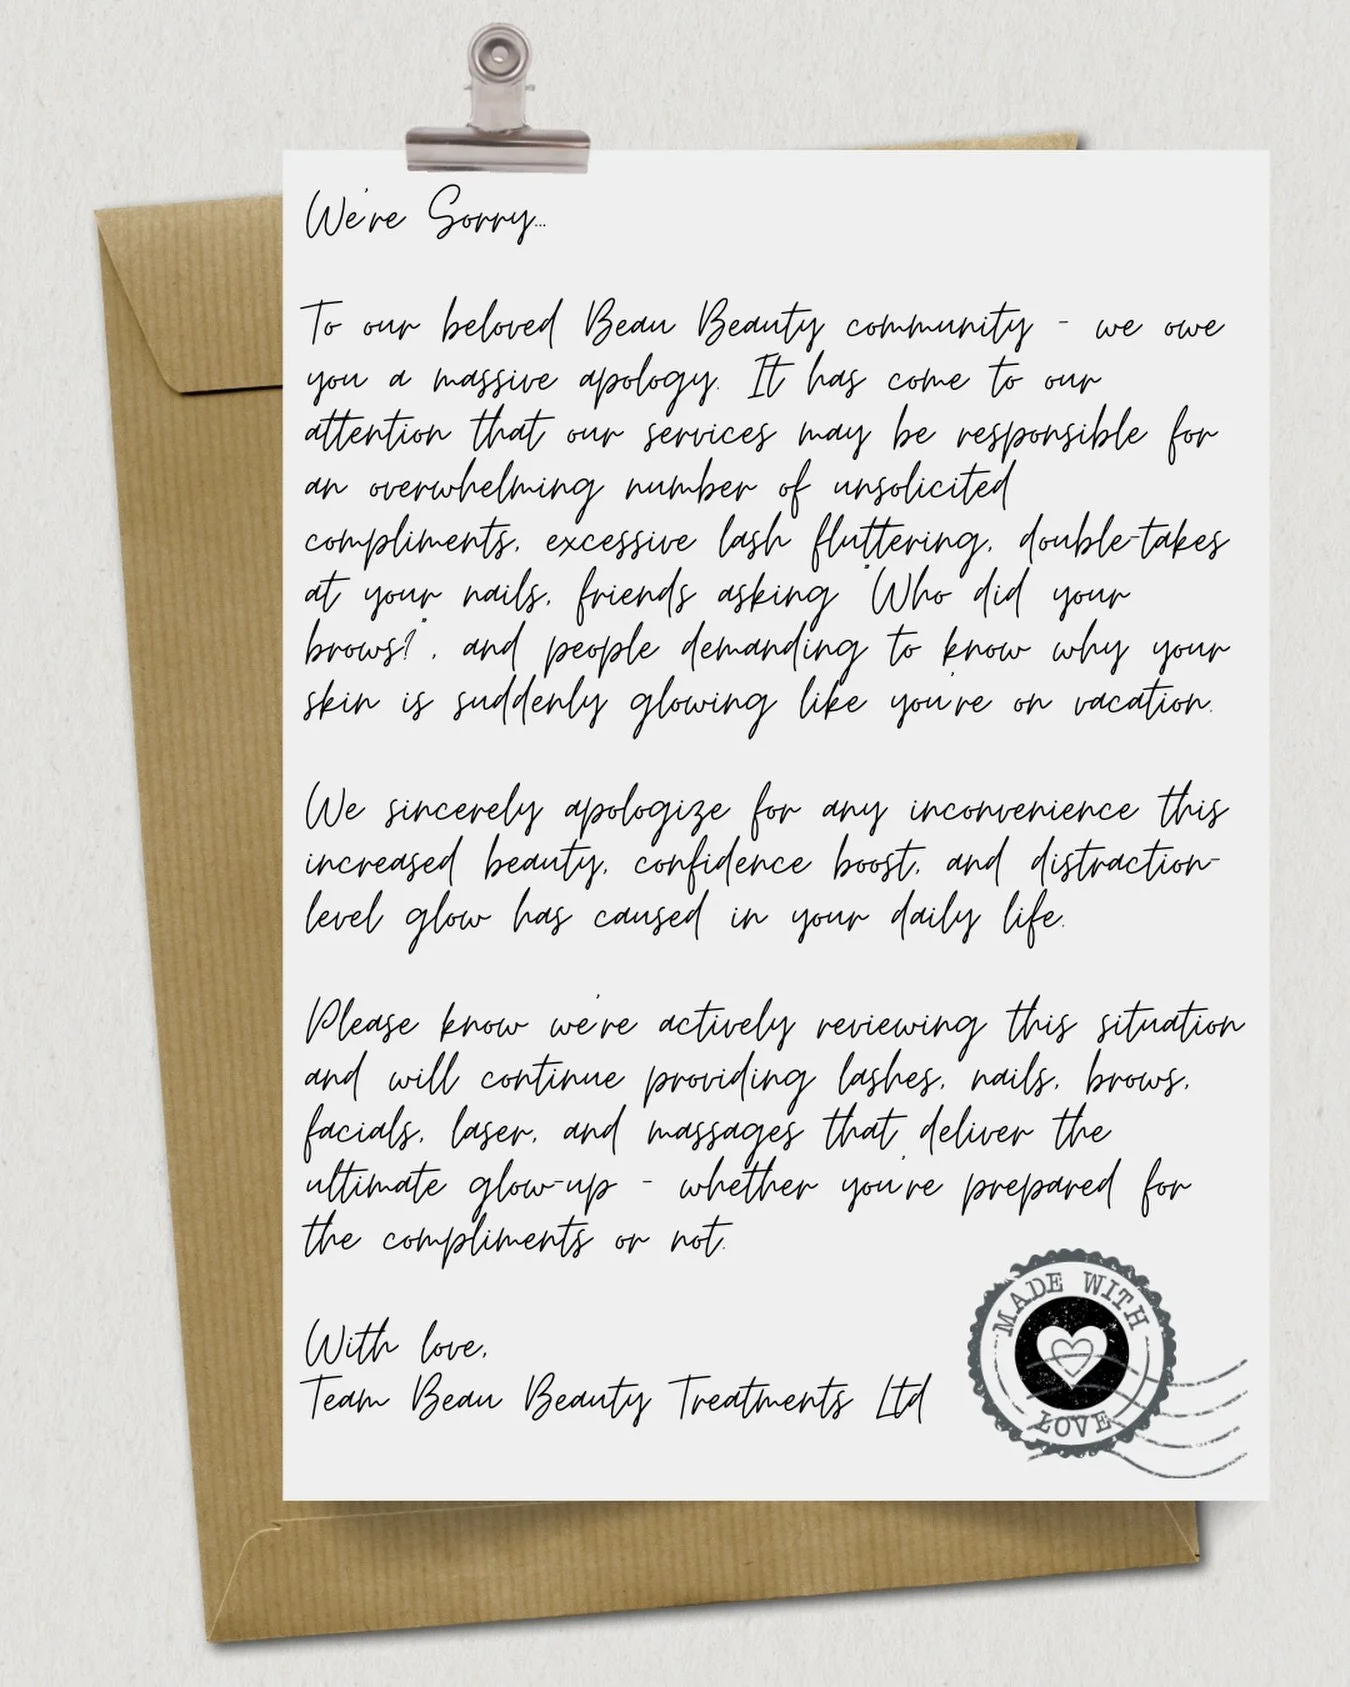 We're Sorry...
To our beloved Beau Beauty community - we owe
you a massive apology. It has come to our
attention that our services may be responsible for
an overwhelming number of unsolicited
compliments, excessive lash fluttering, double-takes
at your nails, friends asking "Who did your
brows?", and people demanding to know why your
skin is suddenly glowing like you're on vacation.
We sincerely apologize for any inconvenience this
increased beauty, confidence boost, and distraction-
level glow has caused in your daily life.
Please know we're actively reviewing this situation
and will continue providing lashes, nails, brows,
facials, laser, and massages that deliver the
ultimate glow-up - whether you're prepared for
the compliments or not.
With love,
Team Beau Beauty Treatments Ltd
MADE WITH
LOVE